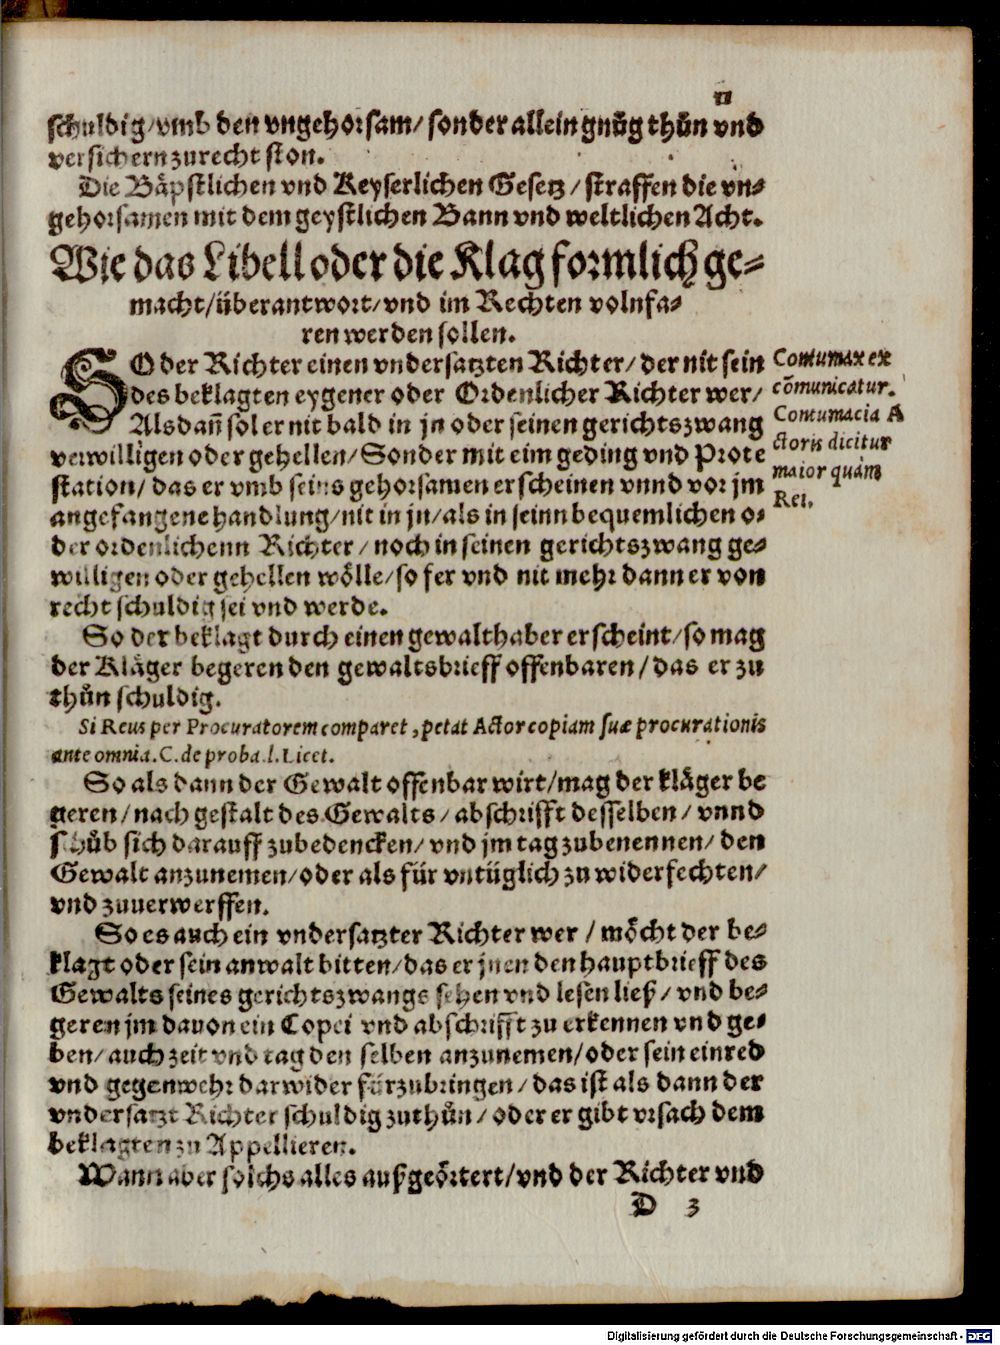 schuldig/vmb den vngehorsam/sonder allein gnůg thůn vnd
versichern zurecht ston.
Die Bäpstlichen vnd Keyserlichen Gesetz/straffen die vn-
gehorsamen mit dem geystlichen Bann vnd weltlichen Acht.
Wie das Libell oder die Klag formlich ge-
macht/überantwort/vnd im Rechten volnfa-
ren werden sollen.
SO der Richter einen vndersatzten Richter/der nit sein
des beklagten eygener oder Ordenlicher Richter wer/
Als dañ sol er nit bald in jn oder seinen gerichtszwang
verwilligen oder gehellen/Sonder mit eim geding vnd Prote
station/das er vmb seins gehorsamen erscheinen vnnd vor jm
angefangene handlung/nit in jn/als in seinn bequemlichen o-
der ordenlichenn Richter/noch in seinen gerichtszwang ge-
willigen oder gehellen wölle/so fer vnd nit mehr dann er von
recht schuldig sei vnd werde.
Contumax ex
cõmunicatur.
Contumacia A
ctoris dicitur
maior quàm
Rei.
So der beklagt durch einen gewalthaber erscheint/so mag
der Kläger begeren den gewaltsbrieff offenbaren/das er zu
thůn schuldig.
Si Reus per Procuratorem comparet, petat Actor copiam suæ procurationis
ante omnia. C. de proba. l. Licet.
So als dann der Gewalt offenbar wirt/mag der kläger be
geren/nach gestalt des Gewalts/abschrifft desselben/vnnd
schůb sich darauff zubedencken/vnd jm tag zubenennen/den
Gewalt anzunemen/oder als für vntüglich zu widerfechten/
vnd zuuerwerffen.
So es auch ein vndersatzter Richter wer/möcht der be-
klagt oder sein anwalt bitten/das er jnen den hauptbrieff des
Gewalts seines gerichtszwangs sehen vnd lesen ließ/vnd be-
geren jm dauon ein Copei vnd abschrifft zu erkennen vnd ge-
ben/auch zeit vnd tag den selben anzunemen/oder sein einred
vnd gegenwehr darwider fürzubringen/das ist als dann der
vndersatzt Richter schuldig zuthůn/oder er gibt vrsach dem
beklagten zu Appellieren.
Wann aber solchs alles außgeörtert/vnd der Richter vnd
D 3
Digitalisierung gefördert durch die Deutsche Forschungsgemeinschaft - DFG